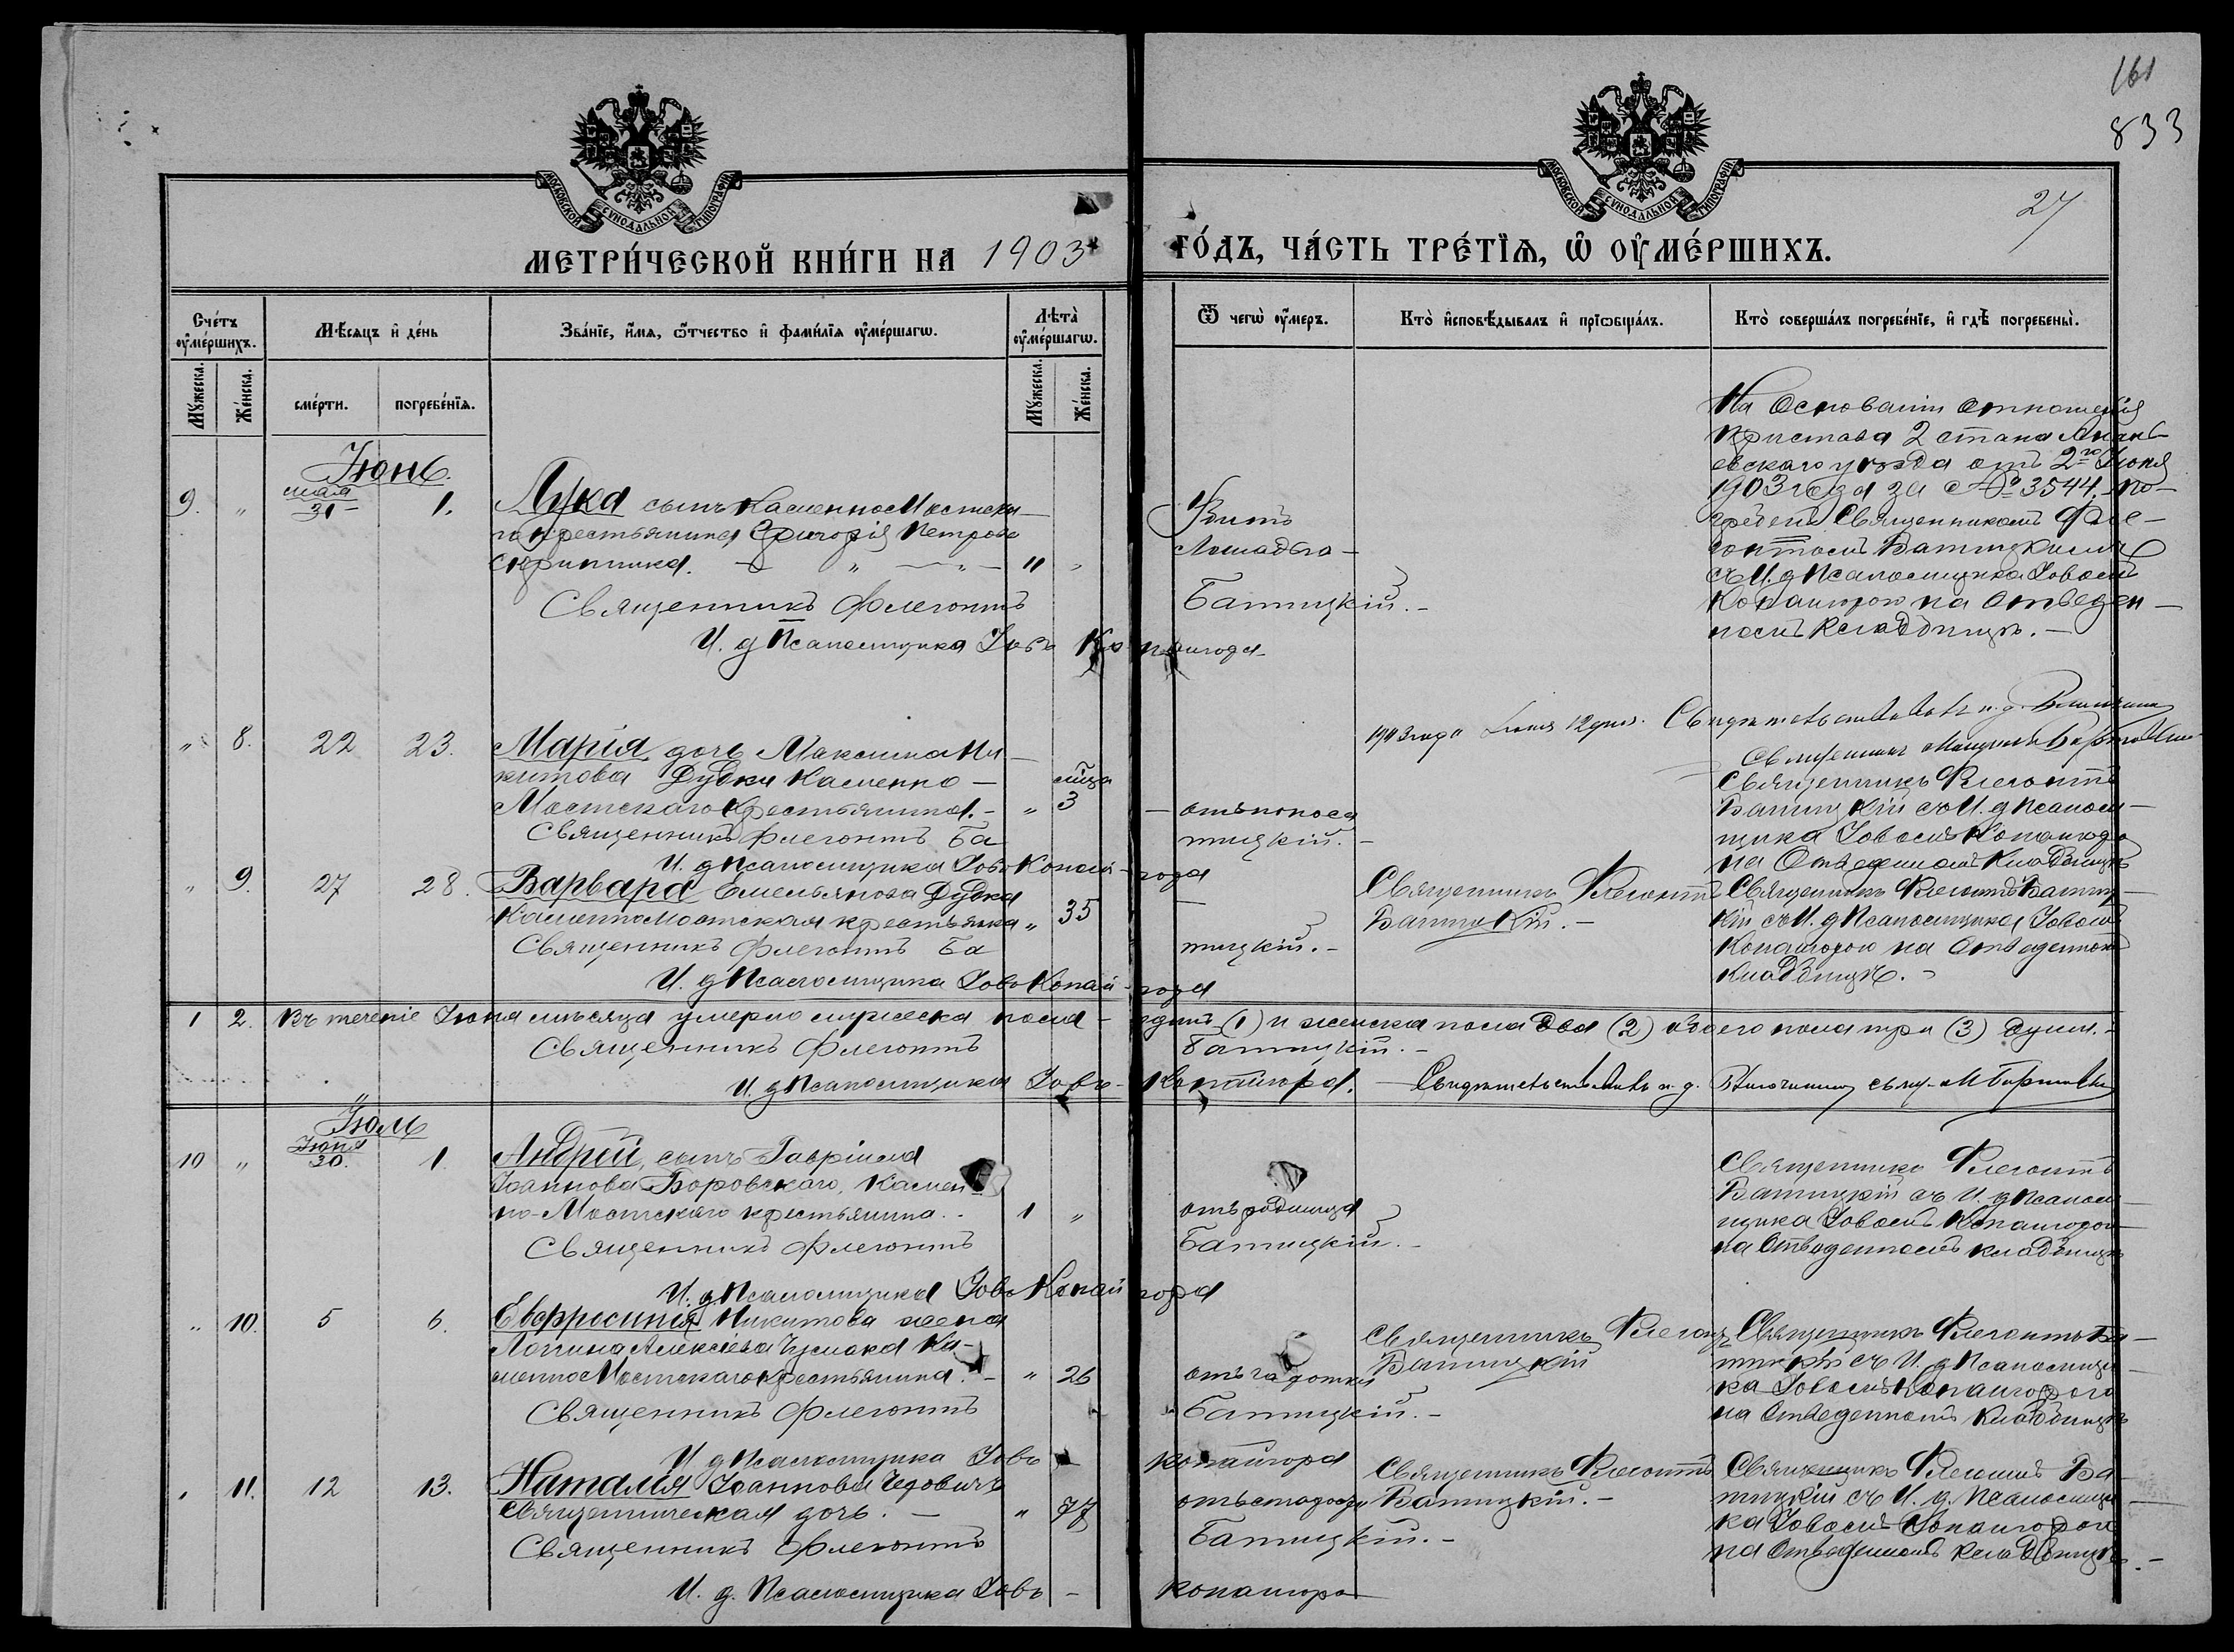 161
833
27
МОСКОВСКОЙ СУНОДАЛЬНОЙ ТИПОГРАФІИ
МОСКОВСКОЙ СУНОДАЛЬНОЙ ТИПОГРАФІИ
МЕТРИ́ЧЕСКОЙ КНИ́ГИ НА 1903
ГО́ДЪ, ЧА́СТЬ ТРЕ́ТІѦ, Ѡ ОУМЕ́РШИХЪ.
Сче́тъ оумершихъ.
Мѣсяцъ и день
Зва́ніе, и́мя, ѿчество и фами́лія оумершагѡ.
Лѣта оумершагѡ.
Ѿ чегѡ оумеръ.
Кто исповѣдывалъ и пріѡбщалъ.
Кто совершалъ погребеніе, и гдѣ погребены.
Мужеска.
Женска.
смерти.
погребенія.
Мужеска.
Женска.
Іюнь.
9. " мая 31 1.
Лука сынъ КаменноМостска-
го крестьянина Григорія Петрова
Скрипника. " "
Священникъ Флегонтъ Батицкій.
И. д Псаломщика Іовъ Копайгора
Убитъ
Лошадью
На Основаніи Отношенія
Пристава 2 стана Ананьевскаго уѣзда отъ 2го Іюня
1903 года за № 3544, по-
гребенъ Священникомъ Фле-
гонтомъ Батицкимъ
съ И. д Псаломщика Іовомъ
Копайгорою на Отведен-
номъ кладбищѣ.
" 8. 22 23.
Марія дочь Максима Ни-
китова Дубки Каменно-
Мостскаго Крестьянина. " мѣца 3
отъ поноса
Священникъ Флегонтъ Батицкій.
И. д Псаломщика Іовъ Копайгора
1903 года Іюня 12 дня. Свидѣтельствовалъ и. д. Благочин
Священникъ
Священникъ Флегонтъ
Батицкій съ И. д Псалом-
щика Іовомъ Копайгорою
на Отведенномъ Кладбищѣ
" 9. 27 28.
Варвара Емельянова Дубка
КаменноМостская крестьянка " 35
Священникъ Флегонтъ Батицкій.
И. д Псаломщика Іовъ Копайгора
Священникъ Флегонтъ
Батицкій.
Священникъ Флегонтъ Батиц-
кій съ И. д Псаломщика Іовомъ
Копайгорою на Отведенномъ
Кладбищѣ.
1 2. Въ теченіе Іюня мѣсяца умерло мужеска пола одинъ (1) и женска пола два (2) обоего пола три (3) душъ.
Священникъ Флегонтъ Батицкій.
И. д Псаломщика Іовъ Копайгора. Свидѣтельствовалъ и. д. Благочиннаго свящ.
Іюль
10 " Іюня 30. 1.
Андрей, сынъ Гавріила
Іоаннова Боровскаго, Камен-
но-Мостскаго крестьянина. 1 "
отъ родимца
Священникъ Флегонтъ Батицкій.
И. д. Псаломщика Іовъ Копайгора
Священникъ Флегонтъ
Батицкій съ И. д Псалом-
щика Іовомъ Копайгорою
на Отведенномъ кладбищѣ
" 10. 5 6.
Евфросинія Никитова жена
Логгина Алексѣева Чумака Ка-
менноМостскаго крестьянина. " 26
отъ чахотки
Священникъ Флегонтъ Батицкій.
И. д Псаломщика Іовъ Копайгора
Священникъ Флегонтъ
Батицкій
Священникъ Флегонтъ Ба-
тицкій съ И. д Псаломщи-
ка Іовомъ Копайгорою
на Отведенномъ Кладбищѣ
" 11. 12 13.
Наталія Іоаннова
Священническая дочь. " 77
отъ старости
Священникъ Флегонтъ Батицкій.
И. д. Псаломщика Іовъ Копайгора
Священникъ Флегонтъ
Батицкій.
Священникъ Флегонтъ Ба-
тицкій съ И. д. Псаломщи-
ка Іовомъ Копайгорою
на Отведенномъ кладбищѣ.